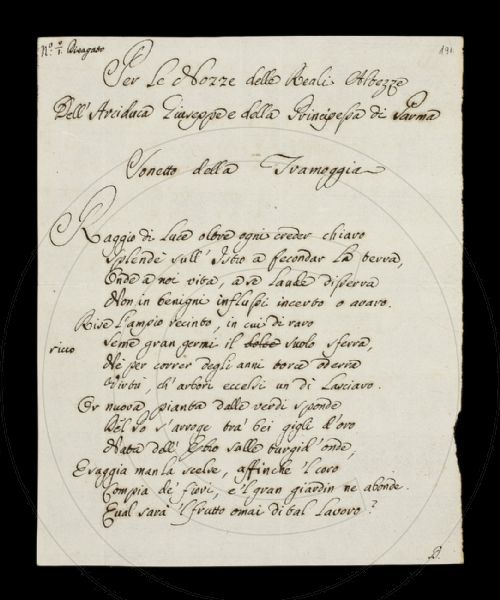 N.º 2/1. Disagato
191
Per Le Nozze delle Reali Altezze
Dell' Arciduca Giuseppe e della Principessa di Parma
Sonetto della Tramoggia
Raggio di Luce oltre ogni creder chiaro
Splende sull' Istro a fecondar La terra,
Onde a noi vita, a se Laude disserra
Non in benigni influssi incerto o avaro.
Rise L'ampio recinto, in cui di raro
ricco
Seme gran germi il dolce suolo sferra,
Nè per correr degli anni torca od erra
Virtù, ch' arbori eccelsi un dì Lasciaro.
Or nuova pianta dalle verdi sponde
Del Po s'arroge tra' bei gigli d'oro
Nata dell' Ibio sulle turgid' onde,
E saggia man la scelse, affinche 'l coro
Compia de' fiori, e 'l gran giardin ne abonde.
Qual sarà 'l frutto omai di tal Lavoro?
D.